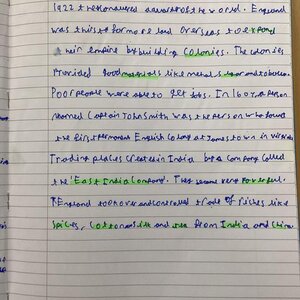 1922 they
was thirsty for more land overseas to expand
their empire by building Colonies. The colonies
Provided good materials like metals sugar and tobacco.
Poor people were able to get jobs. In 160 a Person
named Captain John Smith was the person who found
the first permanent English Colony at James town in
Trading places created in India by a Company called
the 'East India Company'. They became very Powerful.
England took over and controlled trade of riches like
Spices, Cotton silk and tea from India and China